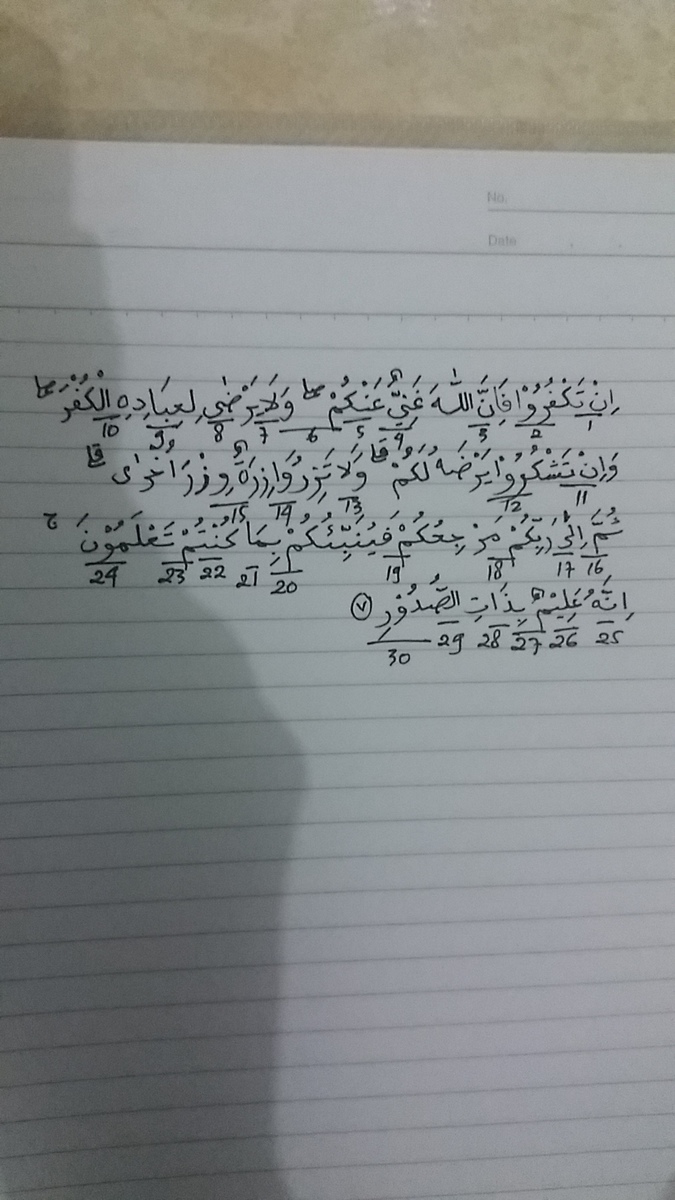 No.
Date
اِنْ تَكْفُرُوْا فَاِنَّ اللّٰهَ غَنِيٌّ عَنْكُمْ ۗ وَلَا يَرْضٰى لِعِبَادِهِ الْكُفْرَ ۚ
1 2 3 4 5 6 7 8 9 10
وَاِنْ تَشْكُرُوْا يَرْضَهُ لَكُمْ ۗ وَلَا تَزِرُ وَازِرَةٌ وِّزْرَ اُخْرٰى ۗ
11 12 13 14 15
ثُمَّ اِلٰى رَبِّكُمْ مَرْجِعُكُمْ فَيُنَبِّئُكُمْ بِمَا كُنْتُمْ تَعْلَمُوْنَ ۚ
16 17 18 19 20 21 22 23 24
اِنَّهُ عَلِيْمٌ بِذَاتِ الصُّدُوْرِ ٧
25 26 27 28 29 30